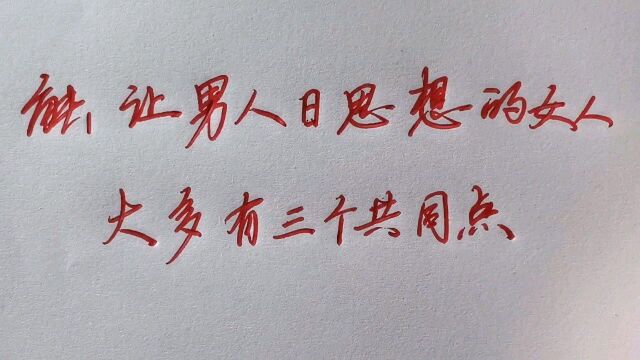 能让男人日思想的女人
大多有三个共同点